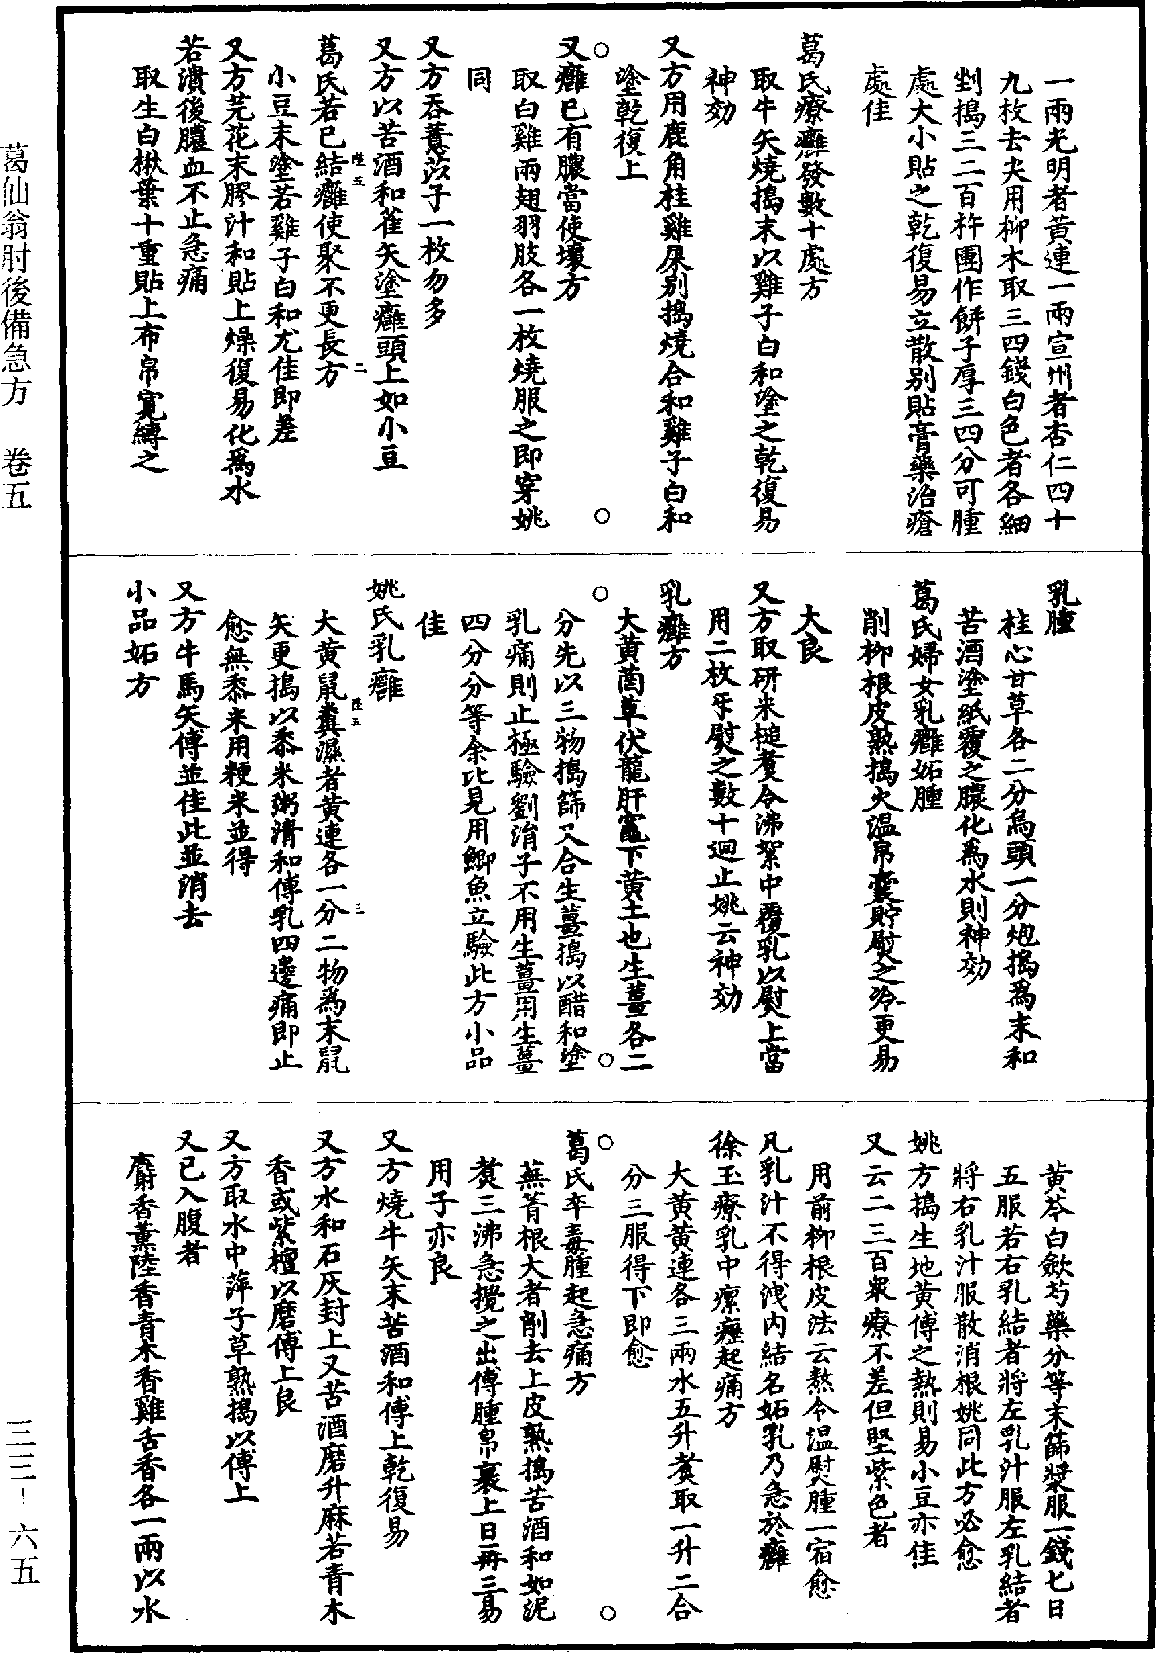 一兩光明者黄連一兩宣州者杏仁四十
九枚去尖用柳木取三四錢白色者各細
剉搗三二百杵團作餅子厚三四分可腫
處大小貼之乾復易立散别貼膏藥治瘡
處佳
葛氏療癰發數十處方
取牛矢燒搗末以雞子白和塗之乾復易
神効
又方用鹿角桂雞屎别搗燒合和雞子白和
塗乾復上
又癰已有膿當使壞方
取白雞兩翅羽肢各一枚燒服之即穿姚
同
又方吞薏苡子一枚勿多
又方以苦酒和雀矢塗癰頭上如小豆
葛氏若已結癰使聚不更長方
小豆末塗若雞子白和尤佳即差
又方芫花末膠汁和貼上燥復易化爲水
若潰後膿血不止急痛
取生白楸葉十重貼上布帛寬縛之
乳腫
桂心甘草各二分烏頭一分炮搗爲末和
苦酒塗紙覆之膿化爲水則神効
葛氏婦女乳癰妬腫
削柳根皮熟搗火温帛囊貯熨之冷更易
大良
又方取研米槌煑令沸絮中覆乳以熨上當
用二枚牙熨之數十迴止姚云神効
乳癰方
大黄䓢草伏龍肝竈下黄土也生薑各二
分先以三物搗篩又合生薑搗以醋和塗
乳痛則止極驗劉涓子不用生薑用生薑
四分分等余比見用鯽魚立驗此方小品
佳
姚氏乳癰
大黄鼠糞濕者黄連各一分二物爲末鼠
矢更搗以黍米粥清和傅乳四邊痛即止
愈無黍米用粳米並得
又方牛馬矢傅並佳此並消去
小品妬方
黄芩白歛芍藥分等末篩漿服一錢匕日
五服若右乳結者將左乳汁服左乳結者
將右乳汁服散消根姚同此方必愈
姚方搗生地黄傅之熱則易小豆亦佳
又云二三百衆療不差但堅紫色者
用前柳根皮法云熬令温熨腫一宿愈
凡乳汁不得洩内結名妬乳乃急於癰
徐玉療乳中瘰癧起痛方
大黄黄連各三兩水五升煑取一升二合
分三服得下即愈
葛氏卒毒腫起急痛方
蕪菁根大者削去上皮熟搗苦酒和如泥
煑三沸急攪之出傅腫帛裹上日再三易
用子亦良
又方燒牛矢末苦酒和傅上乾復易
又方水和石灰封上又苦酒磨升麻若青木
香或紫檀以磨傅上良
又方取水中萍子草熟搗以傅上
又已入腹者
麝香薫陸香青木香雞舌香各一兩以水
陸五
二
陸五
三
葛仙翁肘後備急方 卷五
三三-六五